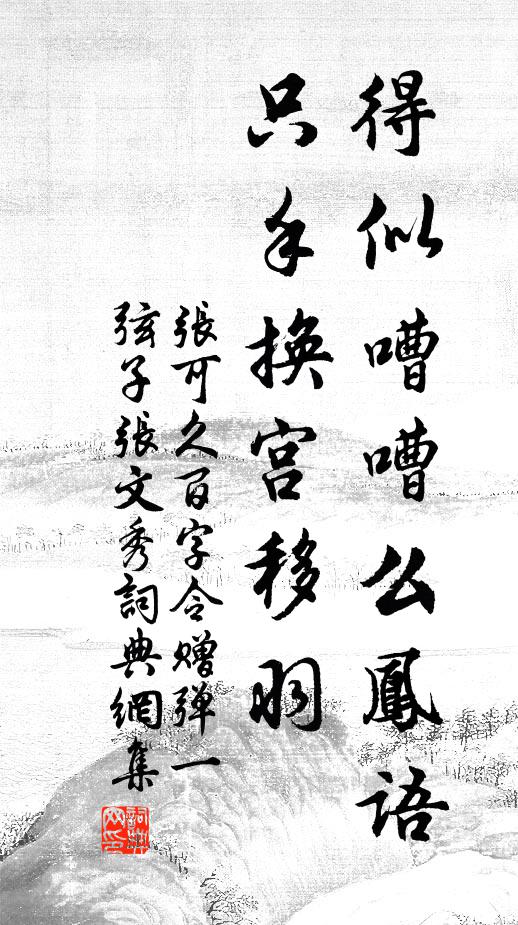 得似嘈嘈么鳳語
只手換宮移羽
張可久百字令贈弹一
弦子張文秀詞典網集